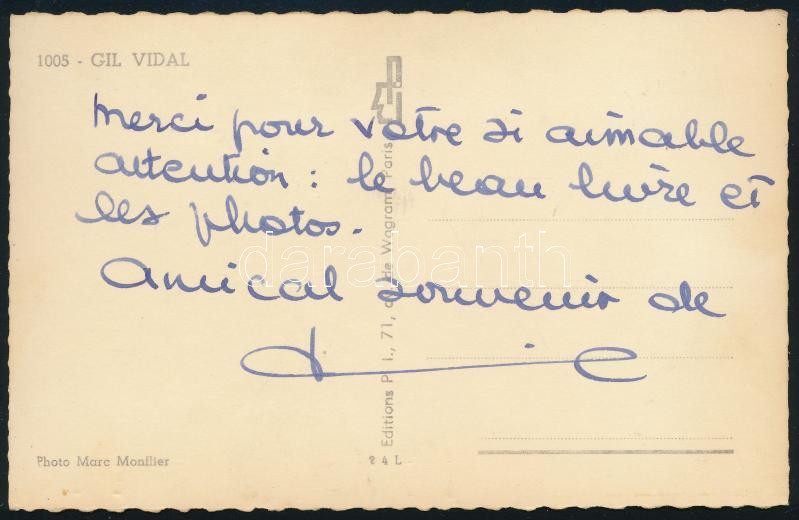 1005 - GIL VIDAL
Merci pour votre si aimable
attention : le beau livre et
les photos.
Amical souvenir de
Editions P. I., 71, de Wagram, Paris
Photo Marc Monflier
84 L
darabanth